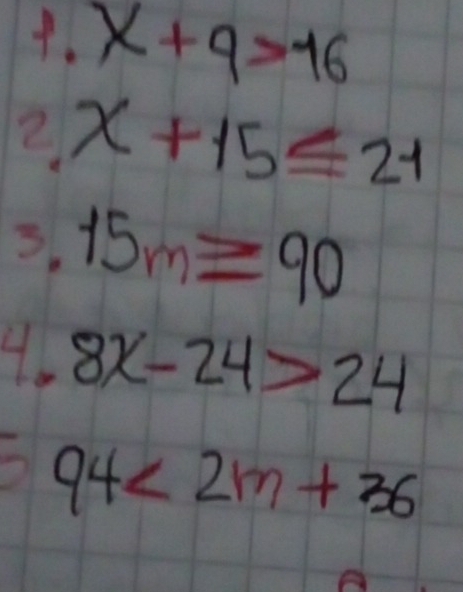 1. x + 9 > 16
2. x + 15 ≤ 21
3. 15m ≥ 90
4. 8x - 24 > 24
5 94 < 2m + 36